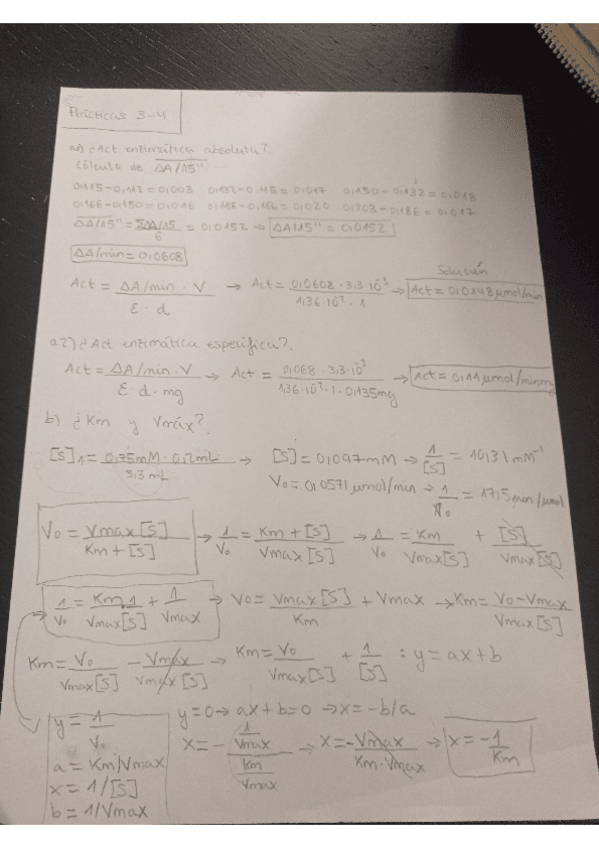 Prácticas 3-4
a1) ¿Act enzimática absoluta?
Cálculo de ΔA/15"
0,115-0,112=0,003 0,132-0,115=0,017 0,150-0,132=0,018
0,166-0,150=0,016 0,186-0,166=0,020 0,203-0,186=0,017
ΔA/15" = ΣΔA/15 / 6 = 0,0152 → ΔA/15" = 0,0152
ΔA/min = 0,0608
Solución
Act = ΔA/min · V / ε · d → Act = 0,0608 · 3,3 · 10⁻³ / 1,36 · 10⁻² · 1 → Act = 0,0148 μmol/min
a2) ¿Act enzimática específica?
Act = ΔA/min · V / ε · d · mg → Act = 0,068 · 3,3 · 10⁻³ / 1,36 · 10⁻² · 1 · 0,135mg → Act = 0,11 μmol/min mg
b) ¿Km y Vmáx?
[S]1 = 0,75mM · 0,2mL / 3,3 mL → [S] = 0,097mM → 1/[S] = 10,31 mM⁻¹
V₀ = 0,0571 μmol/min → 1/V₀ = 17,5 min/μmol
V₀ = Vmax [S] / Km + [S] → 1/V₀ = Km + [S] / Vmax [S] → 1/V₀ = Km / Vmax [S] + [S] / Vmax [S]
1/V₀ = Km 1 / Vmax [S] + 1 / Vmax → V₀ = Vmax [S] / Km + Vmax → Km = V₀ - Vmax / Vmax [S]
Km = V₀ / Vmax [S] - Vmax / Vmax [S] → Km = V₀ / Vmax [S] + 1 / [S] : y = ax + b
y = 1 / V₀
y = 0 → ax + b = 0 → x = -b/a
a = Km/Vmax
x = - 1/Vmax / Km/Vmax → x = - Vmax / Km · Vmax → x = -1 / Km
x = 1/[S]
b = 1/Vmax